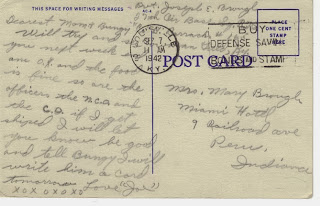 THIS SPACE FOR WRITING MESSAGES
Dearest Mom & Bungy
Will try and
you next week
am O.K. and the food
is fine so are the
officers the N.C.O. and
the C.O. if I get
shiped I will let
you know be good
and tell Bungy I will
write him a card
tomorrow Love "Joe"
XOX OXOXO
Pvt. Joseph E. Brough
Air Base
1942
KY.
BUY
DEFENSE SAVINGS
BONDS AND STAMPS
PLACE
ONE CENT
STAMP
HERE
POST CARD
Mrs. Mary Brough
Miami Hotel
9 Railroad ave
Peru,
Indiana